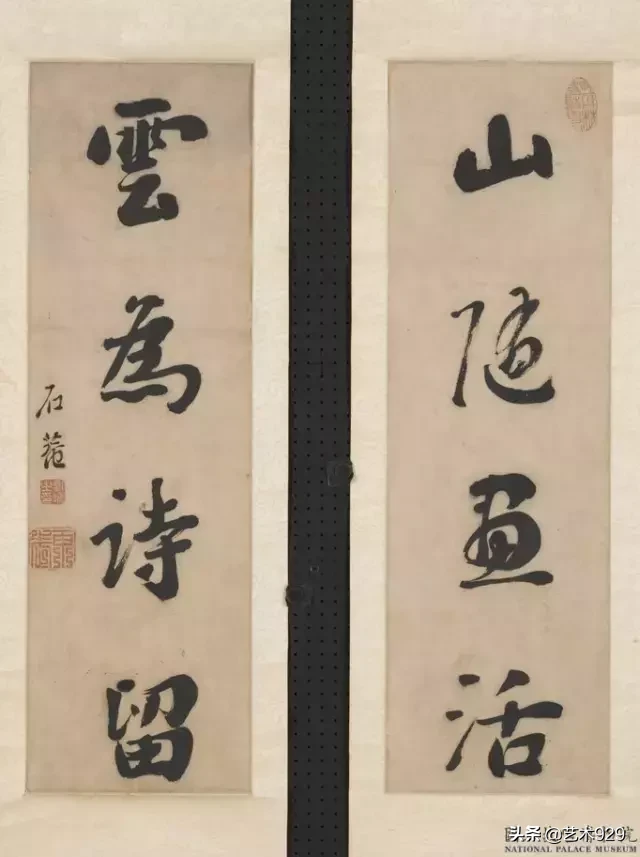 山随画活
雲為詩留
石菴
头条@艺术929
NATIONAL PALACE MUSEUM